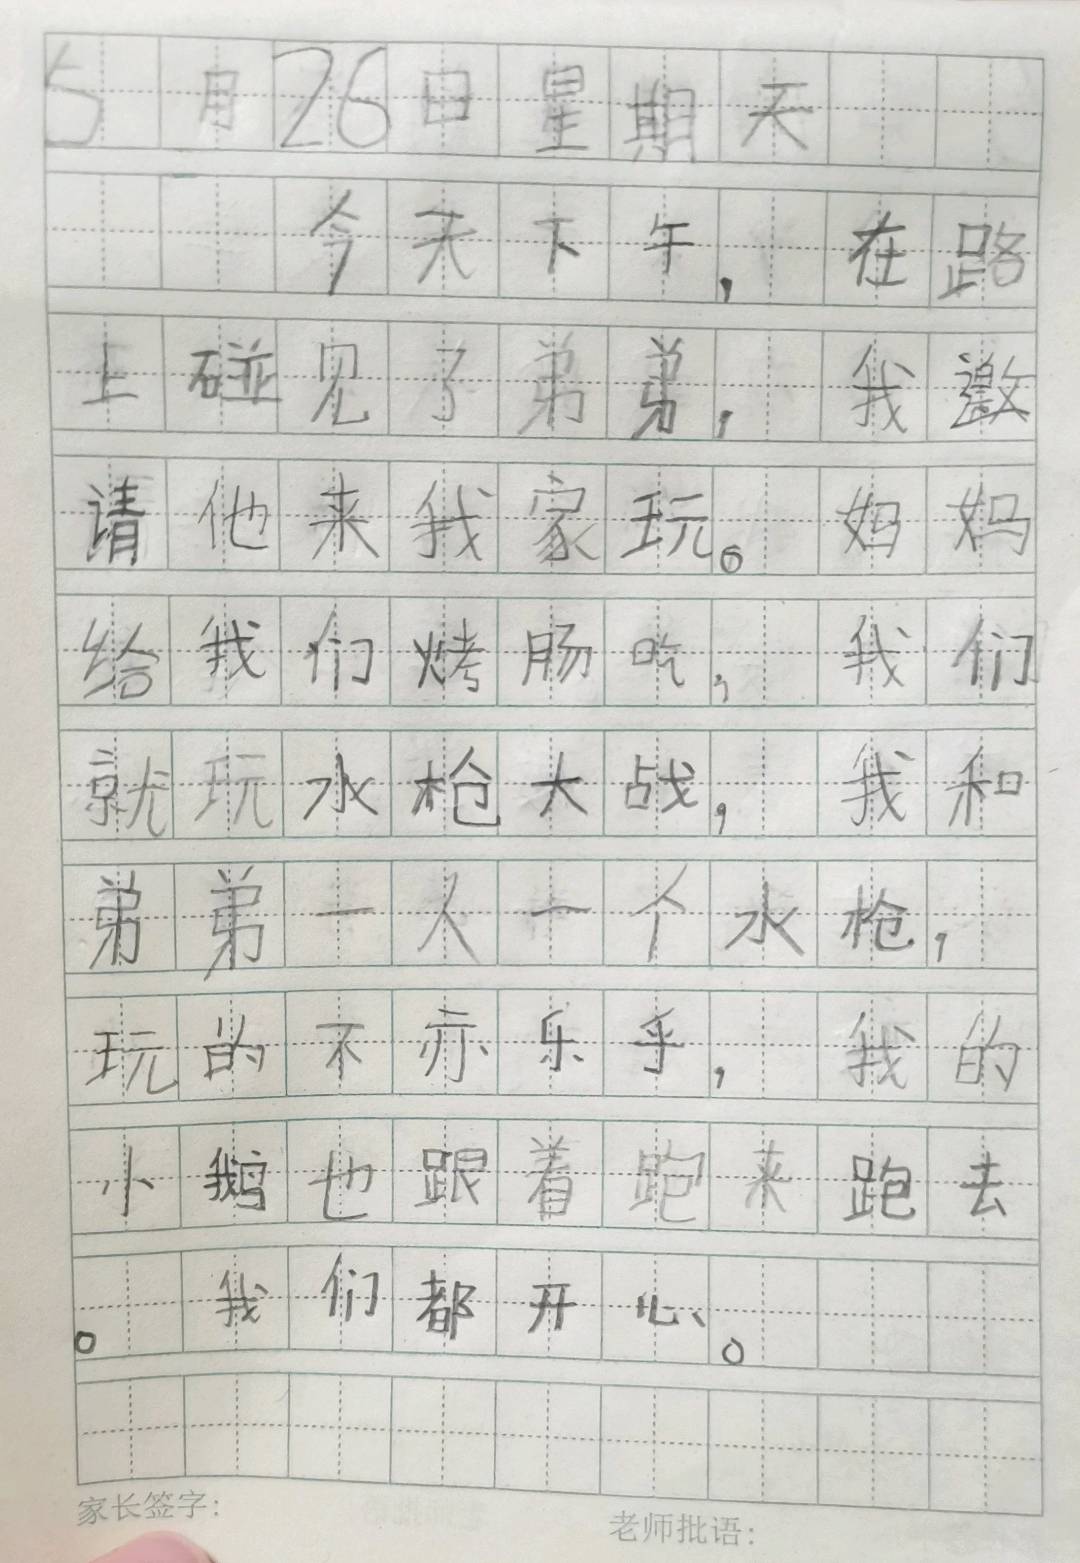 5月26日星期天
今天下午，在路
上碰见了弟弟，我邀
请他来我家玩。妈妈
给我们烤肠吃，我们
就玩水枪大战，我和
弟弟一人一个水枪，
玩的不亦乐乎，我的
小鹅也跟着跑来跑去
。我们都开心。
家长签字：
老师批语：